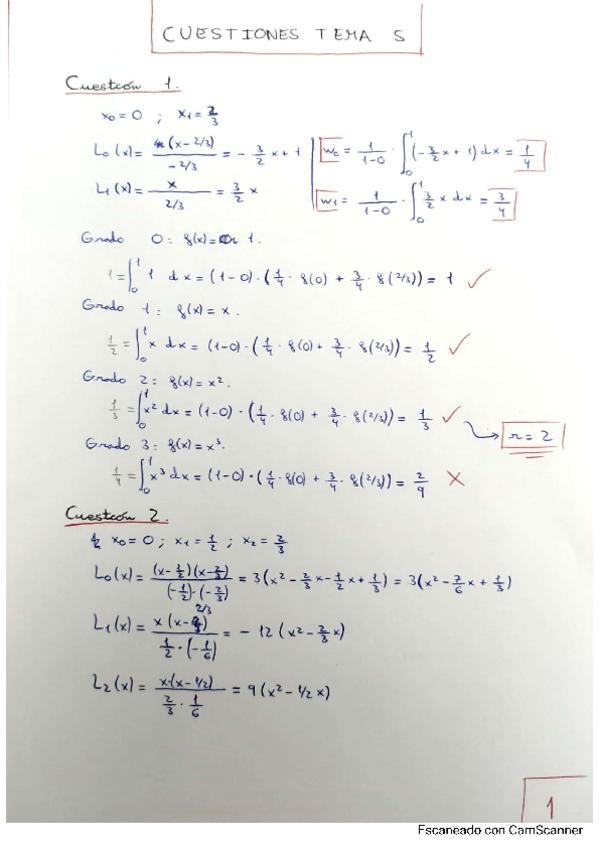 CUESTIONES TEMA 5
Cuestión 1.
x₀ = 0 ; x₁ = 2/3
L₀(x) = (x-2/3)/(-2/3) = -3/2 x + 1 | w₀ = 1/(1-0) · ∫₀¹ (-3/2 x + 1) dx = 1/4
L₁(x) = x/(2/3) = 3/2 x | w₁ = 1/(1-0) · ∫₀¹ 3/2 x dx = 3/4
Grado 0: f(x) = 1.
1 = ∫₀¹ 1 dx = (1-0) · (1/4 · f(0) + 3/4 · f(2/3)) = 1 ✓
Grado 1: f(x) = x.
1/2 = ∫₀¹ x dx = (1-0) · (1/4 · f(0) + 3/4 · f(2/3)) = 1/2 ✓
Grado 2: f(x) = x².
1/3 = ∫₀¹ x² dx = (1-0) · (1/4 · f(0) + 3/4 · f(2/3)) = 1/3 ✓ → r = 2
Grado 3: f(x) = x³.
1/4 = ∫₀¹ x³ dx = (1-0) · (1/4 · f(0) + 3/4 · f(2/3)) = 2/9 ✗
Cuestión 2.
x₀ = 0 ; x₁ = 1/2 ; x₂ = 2/3
L₀(x) = (x-1/2)(x-2/3)/((-1/2)·(-2/3)) = 3(x² - 2/3 x - 1/2 x + 1/3) = 3(x² - 7/6 x + 1/3)
L₁(x) = x(x-2/3)/(1/2 · (-1/6)) = -12(x² - 2/3 x)
L₂(x) = x·(x-1/2)/(2/3 · 1/6) = 9(x² - 1/2 x)
1
Escaneado con CamScanner